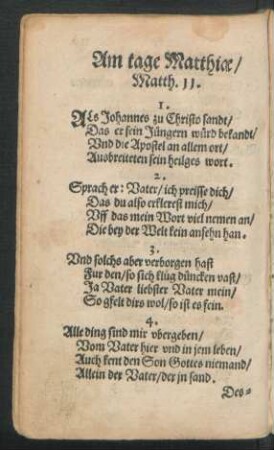 Am tage Matthiæ/
Matth. 11.
1.
Als Johannes zu Christo sandt/
Das er sein Jüngern würd bekandt/
Vnd die Apostel an allem ort/
Ausbreiteten sein heilges wort.
2.
Sprach er: Vater/ ich preisse dich/
Das du also erklerest mich/
Vff das mein Wort viel nemen an/
Die bey der Welt kein ansehn han.
3.
Vnd solchs aber verborgen hast
Fur den/ so sich klüg düncken vast/
Ja Vater liebster Vater mein/
So gfelt dirs wol/ so ist es fein.
4.
Alle ding sind mir vbergeben/
Vom Vater hier vnd in jem leben/
Auch kent den Son Gottes niemand/
Allein der Vater/ der jn sand.
Des=